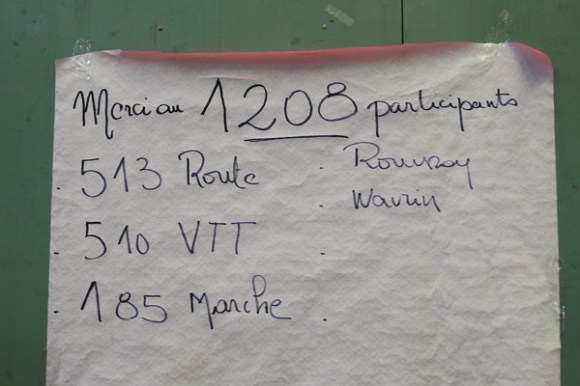 Merci au 1208 participants
. 513 Route
. 510 VTT
. 185 Marche
. Rouvroy
. Wavrin
.
.